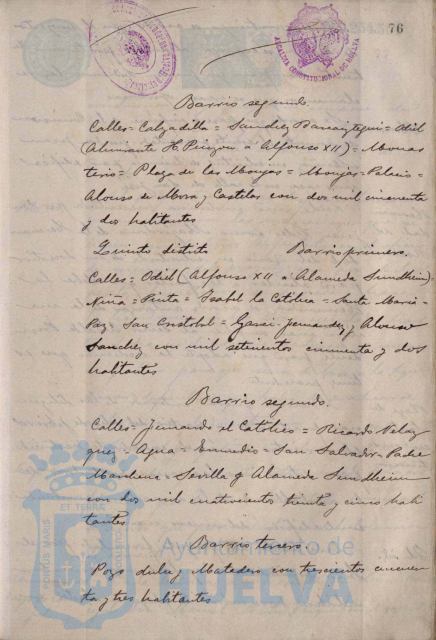 76
ALCALDIA CONSTITUCIONAL DE HUELVA
Barrio segundo.
Calles = Calzadilla = Sanchez Barcaiztegui = Odiel
(Almirante H. Pinzon a Alfonso XII) = Monas
terio = Plaza de las Monjas = Monjas = Palacio =
Alonso de Mora y Castelar con dos mil cincuenta
y dos habitantes
Quinto distrito Barrio primero.
Calles = Odiel (Alfonso XII a Alameda Sundheim) =
Niña = Pinta = Isabel la Católica = Santa Maria =
Paz = San Cristobal = Garci-Fernandez y Alonso
Sanchez con mil setecientos cincuenta y dos
habitantes
Barrio segundo.
Calles = Fernando el Católico = Ricardo Velaz
quez = Agua = Enmedio = San Salvador = Padre
Marchena = Sevilla y Alameda Sundheim
con dos mil cuatrocientos treinta y cinco habi
tantes
Barrio tercero
Pozo dulce y Matadero con trescientos cincuen
ta y tres habitantes
PORTUS MARIS ET TERRAE CUSTODIA
Ayuntamiento de
HUELVA